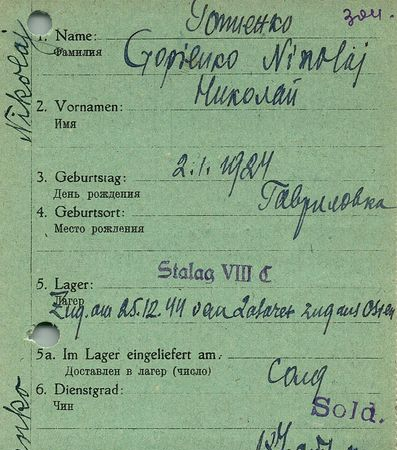 зач.
1. Name:
Фамилия
Устиенко
Nikolaj
2. Vornamen:
Имя
Николай
3. Geburtstag: 2.1.1924
День рождения
4. Geburtsort: Гавриловка
Место рождения
5. Lager: Stalag VIII C
Лагер
Zug. am 25.12.44 van Lazaret zug aus Osten
5a. Im Lager eingeliefert am
Доставлен в лагер (число)
6. Dienstgrad: Солд
Чин
Sold.
Nikolaj
enko